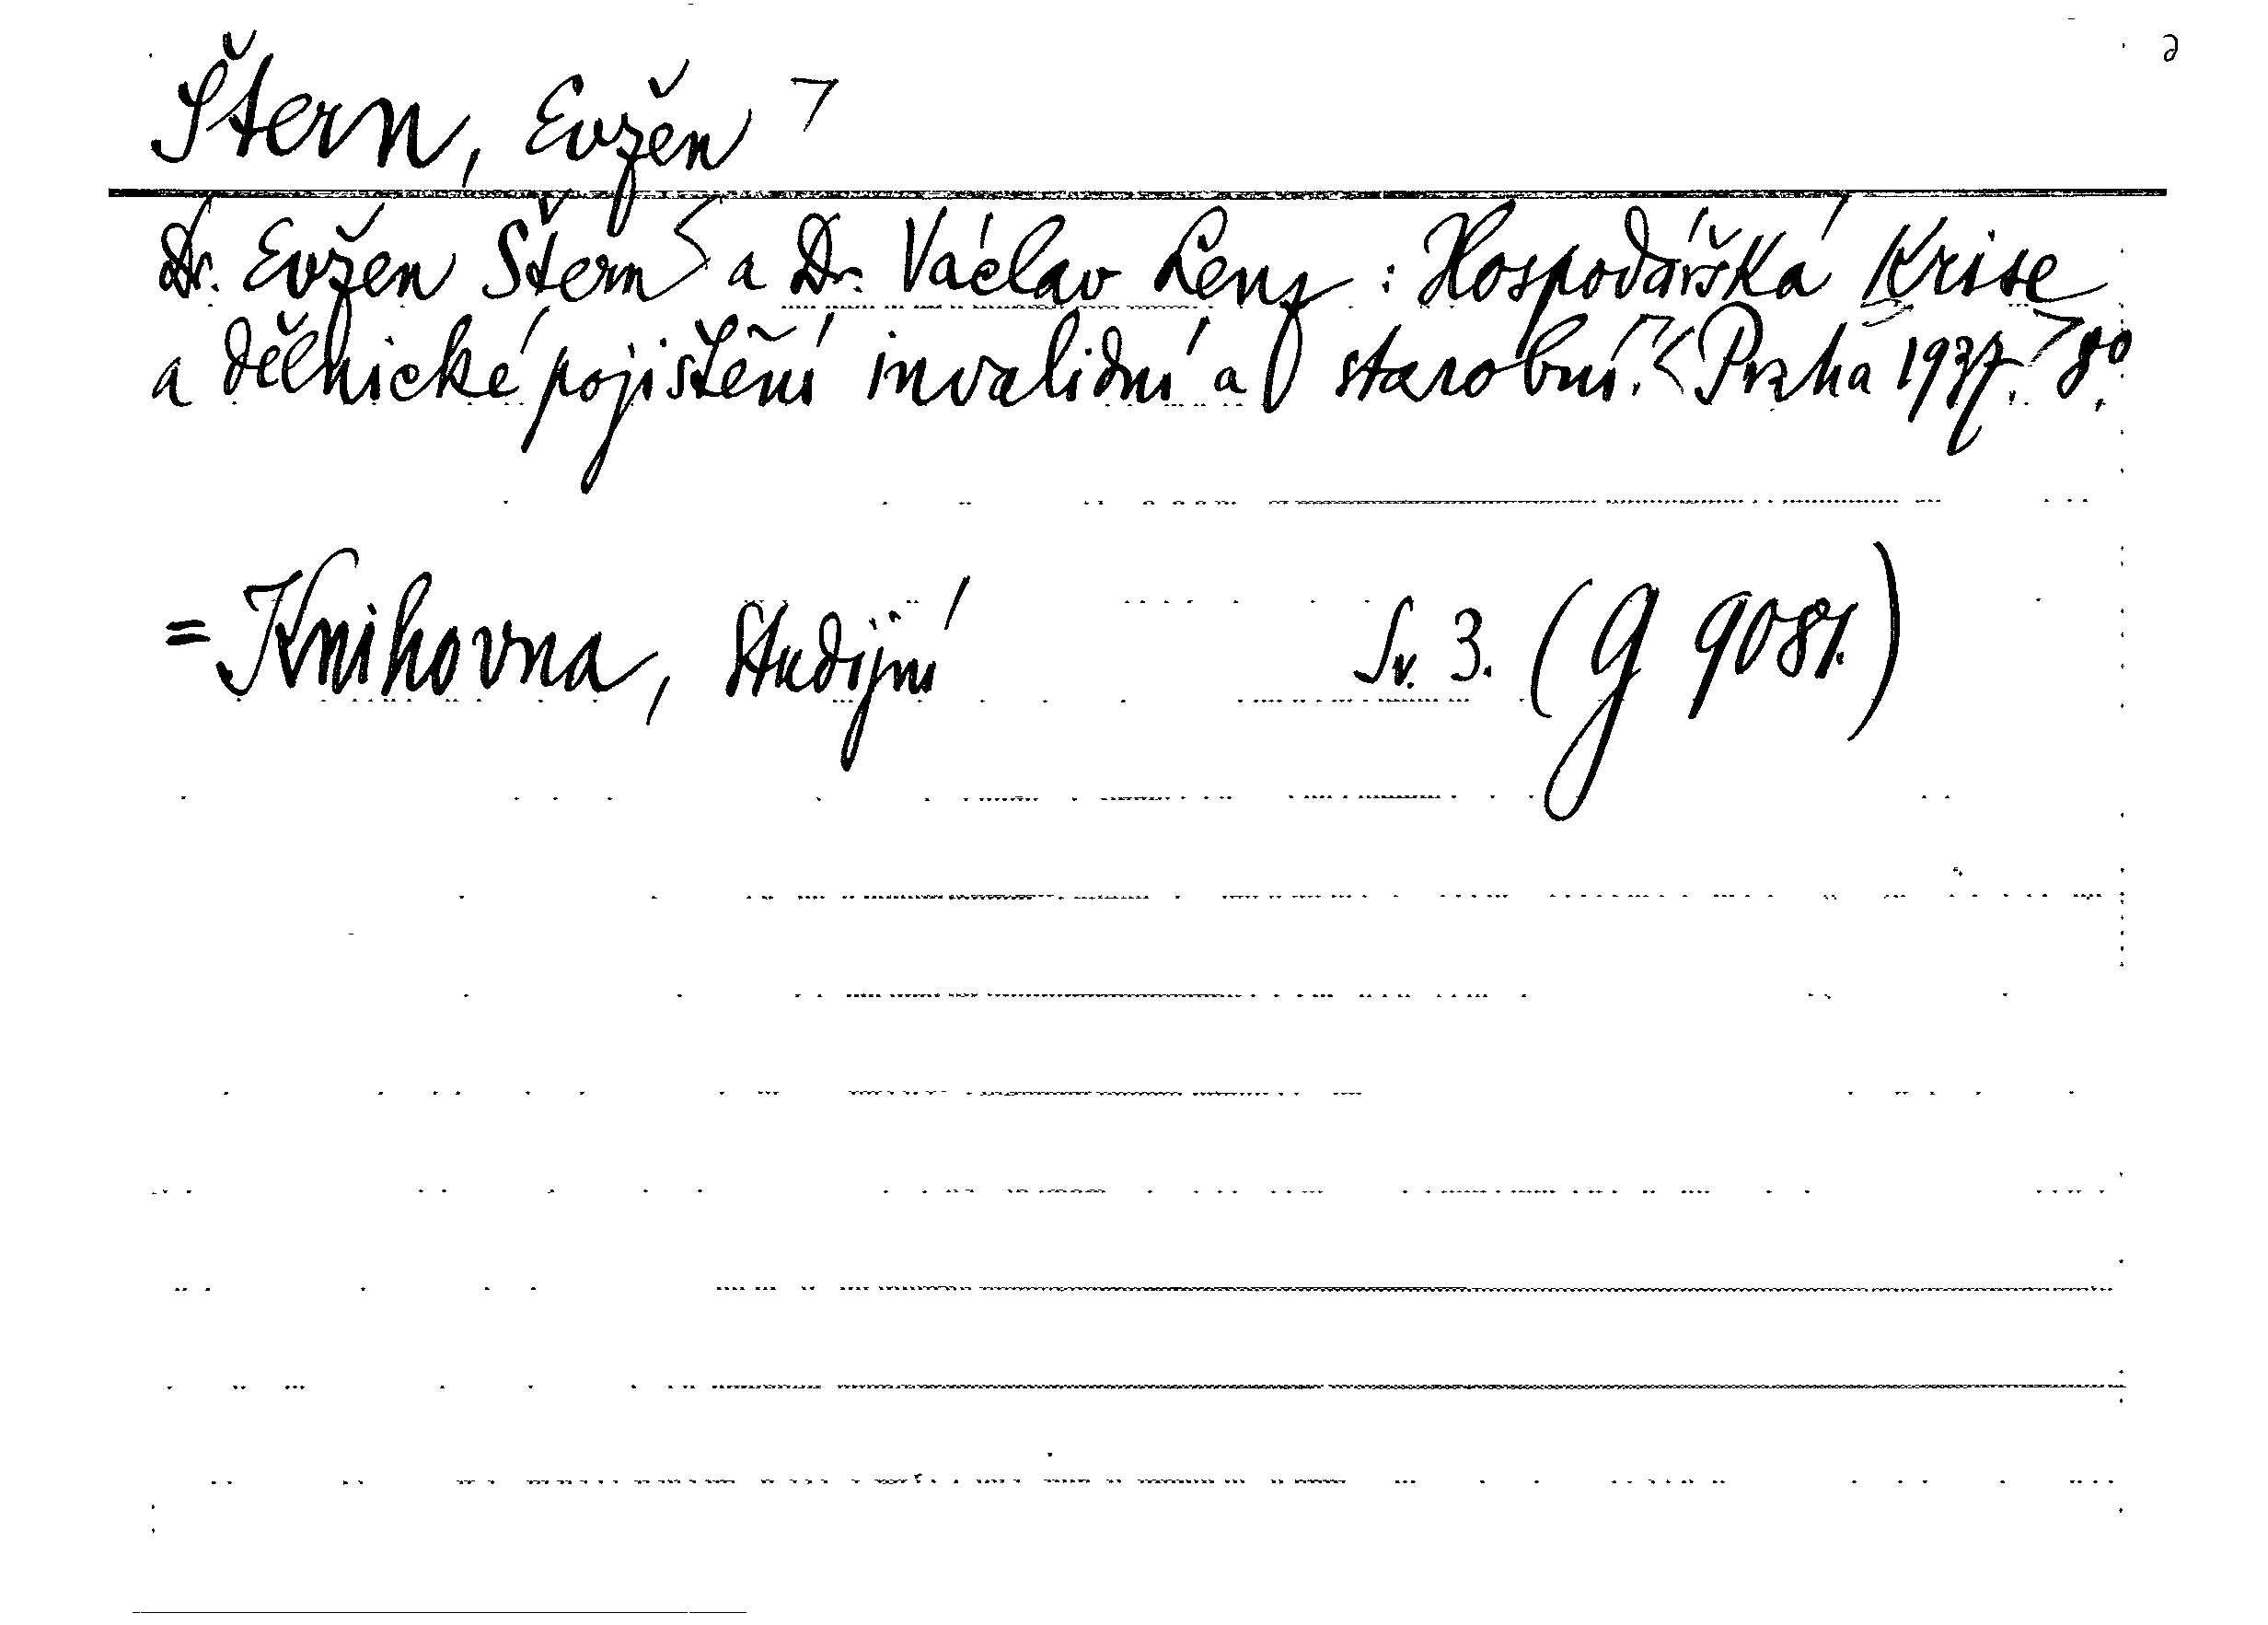 Štern, Evžen
Dr. Evžen Štern a Dr. Václav Lenz : Hospodářská krise
a dělnické pojištění invalidní a starobní. Praha 1937. 8°.
= Knihovna, Studijní Sv. 3. (G 9081.)